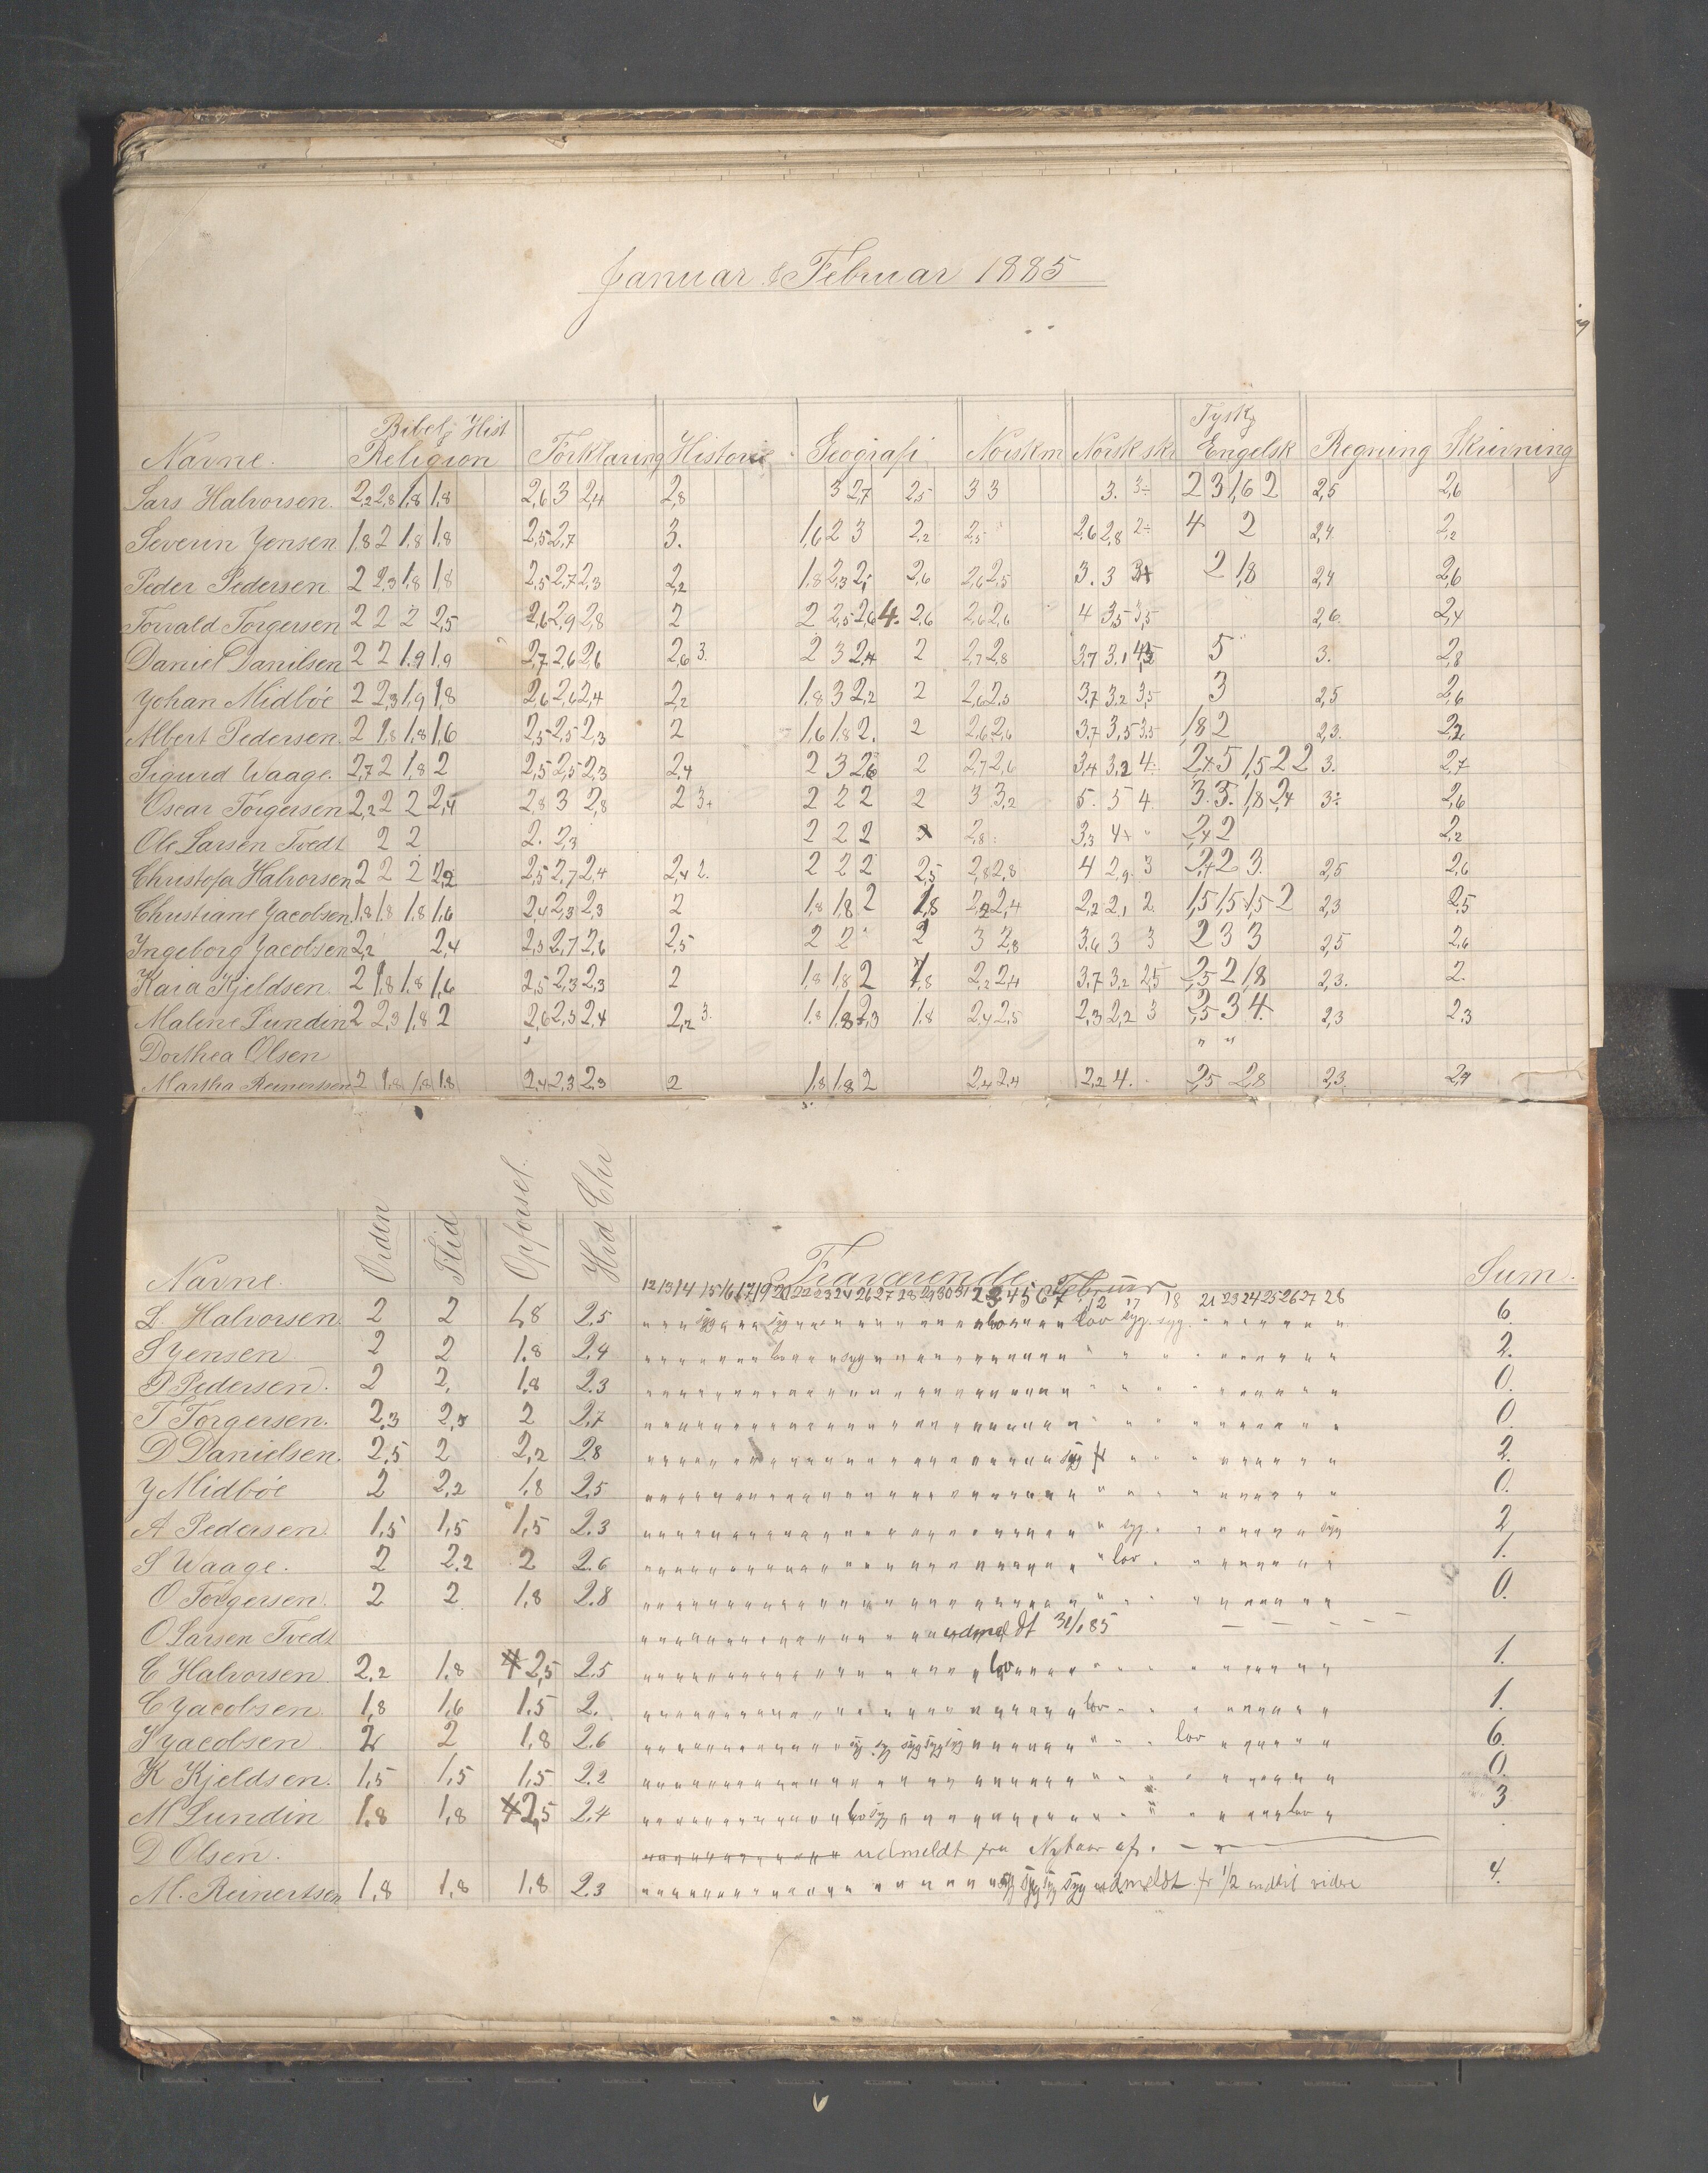 Januar & Februar 1885
Navne. Bibelg Hist Religion Forklaring Historie Geografi Norsk m Norsk skr Tysk Engelsk Regning Skrivning
Lars Halvorsen. 2,2 2,8 1,8 1,8 2,6 3 2,4 2,8 3 2,7 2,5 3 3 3. 3÷ 2 3 1,6 2 2,5 2,6
Severin Jensen 1,8 2 1,8 1,8 2,5 2,7 3. 1,6 2 3 2,2 2,5 2,6 2,8 2÷ 4 2 2,4. 2,2
Peder Pedersen 2 2,3 1,8 1,8 2,5 2,7 2,3 2,2 1,8 2,3 2, 2,6 2,6 2,5 3. 3 2 1,8 2,4 2,6
Torvald Torgersen 2 2 2 2,5 2,6 2,9 2,8 2 2 2,5 2,6 4. 2,6 2,6 2,6 4 3,5 3,5 2,6. 2,4
Daniel Danilsen 2 2 1,9 1,9 2,7 2,6 2,6 2,6 3. 2 3 2,4 2 2,7 2,8 3,7 3,1 5 3. 2,8
Johan Midböe 2 2,3 1,9 1,8 2,6 2,6 2,4 2,2 1,8 3 2,2 2 2,6 2,5 3,7 3,2 3,5 3 2,5 2,6
Albert Pedersen. 2 1,8 1,8 1,6 2,5 2,5 2,3 2 1,6 1,8 2. 2 2,6 2,6 3,7 3,5 3,5 1,8 2 2,3. 2,2
Sigurd Waage. 2,7 2 1,8 2 2,5 2,5 2,3 2,4 2 3 2,6 2 2,7 2,6 3,4 3,2 4. 2,4 5 1,5 2 2 3. 2,7
Oscar Torgersen 2,2 2 2 2,4 2,8 3 2,8 2 3+ 2 2 2 2 3 3,2 5. 5 4. 3. 3. 1,8 2,4 3÷ 2,6
Ole Larsen Tvedt 2 2 2. 2,3 2 2 2 2,8 3,3 4+ " 2,4 2 2,2
Christofa Halvorsen 2 2 2 2,2 2,5 2,7 2,4 2,4 2. 2 2 2 2,5 2,8 2,8 4 2,9 3 2,4 2 3. 2,5 2,6
Christiane Jacobsen 1,8 1,8 1,8 1,6 2,4 2,3 2,3 2 1,8 1,8 2 1,8 2,2 2,4 2,2 2,1 2. 1,5 1,5 1,5 2 2,3 2,5
Ingeborg Jacobsen 2,2 2,4 2,3 2,7 2,6 2,5 2 2 2 3 2,8 3,6 3 3 2 3 3 2,5 2,6
Kaia Kjeldsen. 2 1,8 1,8 1,6 2,5 2,3 2,3 2 1,8 1,8 2 1,8 2,2 2,4 3,7 3,2 2,5 2,5 2 1,8 2,3. 2.
Malene Lundin 2 2,3 1,8 2 2,6 2,3 2,4 2,2 3. 1,8 1,8 2,3 1,8 2,4 2,5 2,3 2,2 3 2,5 3 4. 2,3 2,3
Dorthea Olsen " "
Martha Reinertsen 2 1,8 1,8 1,8 2,4 2,3 2,3 2 1,8 1,8 2 2,4 2,4 2,2 4. 2,5 2,8 2,3. 2,4
Navne. Orden Flid Opforsel. Hvd Chr Fraværende Februar Sum.
12 13 14 15 16 17 19 20 21 22 23 24 26 27 28 29 30 31 2 3 4 5 6 7 12 17 18 21 23 24 25 26 27 28
L. Halvorsen 2 2 1,8 2.5 syg syg lov lov syg. syg. 6.
S Jensen 2 2 1.8 2.4 lov syg 2.
P Pedersen. 2 2. 1,8 2.3 0.
T Torgersen. 2,3 2,3 2 2.7 0.
D Danielsen. 2,5 2 2,2 2.8 syg 2.
J Midböe 2 2,2 1,8 2.5 0.
A Pedersen 1,5 1,5 1,5 2.3 syg. syg 2
S Waage. 2 2.2 2 2.6 lov 1.
O Torgersen. 2 2 1,8 2.8 0.
O Larsen Tvedt udmeldt 31/1 85
C Halvorsen 2.2 1,8 2,5 2.5 lov 1.
C Jacobsen 1,8 1,6 1.5 2. lov 1.
I Jacobsen 2 2 1,8 2.6 syg syg syg syg syg lov 6.
K Kjeldsen. 1,5 1,5 1,5 2.2 0.
M Lundin 1.8 1,8 2,5 2.4 lov syg lov 3
D Olsen. udmeldt fra Nytaar af.
M. Reinertsen 1,8 1,8 1,8 2.3 syg syg syg syg udmeldt fr 1/2 indtil videre 4.